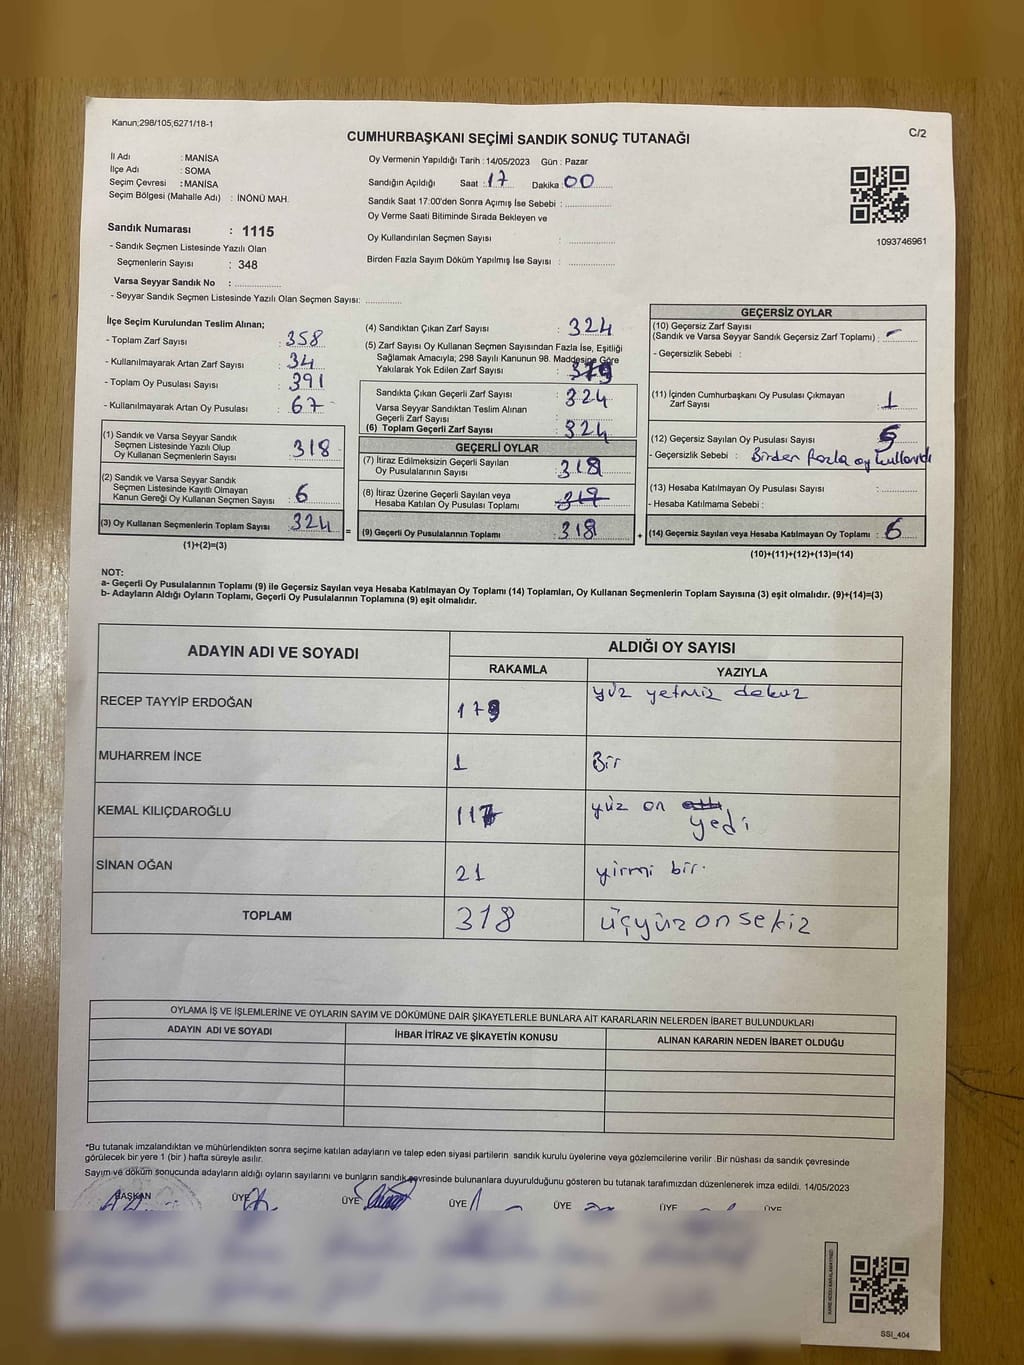 Kanun;298/105,6271/18-1
CUMHURBAŞKANI SEÇİMİ SANDIK SONUÇ TUTANAĞI
C/2
İl Adı : MANİSA
İlçe Adı : SOMA
Seçim Çevresi : MANİSA
Seçim Bölgesi (Mahalle Adı) : İNÖNÜ MAH.
Oy Vermenin Yapıldığı Tarih : 14/05/2023 Gün : Pazar
Sandığın Açıldığı Saat : 17 Dakika : 00
Sandık Saat 17:00'den Sonra Açımış İse Sebebi :
Oy Verme Saati Bitiminde Sırada Bekleyen ve
Oy Kullandırılan Seçmen Sayısı :
Birden Fazla Sayım Döküm Yapılmış İse Sayısı :
1093746961
Sandık Numarası : 1115
- Sandık Seçmen Listesinde Yazılı Olan
Seçmenlerin Sayısı : 348
Varsa Seyyar Sandık No :
- Seyyar Sandık Seçmen Listesinde Yazılı Olan Seçmen Sayısı:
İlçe Seçim Kurulundan Teslim Alınan;
- Toplam Zarf Sayısı : 358
- Kullanılmayarak Artan Zarf Sayısı : 34
- Toplam Oy Pusulası Sayısı : 391
- Kullanılmayarak Artan Oy Pusulası : 67
(1) Sandık ve Varsa Seyyar Sandık
Seçmen Listesinde Yazılı Olup
Oy Kullanan Seçmenlerin Sayısı : 318
(2) Sandık ve Varsa Seyyar Sandık
Seçmen Listesinde Kayıtlı Olmayan
Kanun Gereği Oy Kullanan Seçmen Sayısı : 6
(3) Oy Kullanan Seçmenlerin Toplam Sayısı : 324 =
(1)+(2)=(3)
(4) Sandıktan Çıkan Zarf Sayısı : 324
(5) Zarf Sayısı Oy Kullanan Seçmen Sayısından Fazla İse, Eşitliği
Sağlamak Amacıyla; 298 Sayılı Kanunun 98. Maddesine Göre
Yakılarak Yok Edilen Zarf Sayısı :
Sandıkta Çıkan Geçerli Zarf Sayısı : 324
Varsa Seyyar Sandıktan Teslim Alınan
Geçerli Zarf Sayısı :
(6) Toplam Geçerli Zarf Sayısı : 324
GEÇERLİ OYLAR
(7) İtiraz Edilmeksizin Geçerli Sayılan
Oy Pusulalarının Sayısı : 318
(8) İtiraz Üzerine Geçerli Sayılan veya
Hesaba Katılan Oy Pusulası Toplamı : 317
(9) Geçerli Oy Pusulalarının Toplamı : 318 +
GEÇERSİZ OYLAR
(10) Geçersiz Zarf Sayısı
(Sandık ve Varsa Seyyar Sandık Geçersiz Zarf Toplamı) : -
- Geçersizlik Sebebi :
(11) İçinden Cumhurbaşkanı Oy Pusulası Çıkmayan
Zarf Sayısı : 1
(12) Geçersiz Sayılan Oy Pusulası Sayısı : 5
- Geçersizlik Sebebi : Birden fazla oy kullanıldı
(13) Hesaba Katılmayan Oy Pusulası Sayısı :
- Hesaba Katılmama Sebebi :
(14) Geçersiz Sayılan veya Hesaba Katılmayan Oy Toplamı : 6
(10)+(11)+(12)+(13)=(14)
NOT:
a- Geçerli Oy Pusulalarının Toplamı (9) ile Geçersiz Sayılan veya Hesaba Katılmayan Oy Toplamı (14) Toplamları, Oy Kullanan Seçmenlerin Toplam Sayısına (3) eşit olmalıdır. (9)+(14)=(3)
b- Adayların Aldığı Oyların Toplamı, Geçerli Oy Pusulalarının Toplamına (9) eşit olmalıdır.
ADAYIN ADI VE SOYADI
ALDIĞI OY SAYISI
RAKAMLA YAZIYLA
RECEP TAYYİP ERDOĞAN 179 yüz yetmiz dokuz
MUHARREM İNCE 1 Bir
KEMAL KILIÇDAROĞLU 117 yüz on altı yedi
SİNAN OĞAN 21 yirmi bir.
TOPLAM 318 üçyüzonsekiz
OYLAMA İŞ VE İŞLEMLERİNE VE OYLARIN SAYIM VE DÖKÜMÜNE DAİR ŞİKAYETLERLE BUNLARA AİT KARARLARIN NELERDEN İBARET BULUNDUKLARI
ADAYIN ADI VE SOYADI İHBAR İTİRAZ VE ŞİKAYETİN KONUSU ALINAN KARARIN NEDEN İBARET OLDUĞU
*Bu tutanak imzalandıktan ve mühürlendikten sonra seçime katılan adayların ve talep eden siyasi partilerin sandık kurulu üyelerine veya gözlemcilerine verilir .Bir nüshası da sandık çevresinde
görülecek bir yere 1 (bir ) hafta süreyle asılır.
Sayım ve döküm sonucunda adayların aldığı oyların sayılarını ve bunların sandık çevresinde bulunanlara duyurulduğunu gösteren bu tutanak tarafımızdan düzenlenerek imza edildi. 14/05/2023
BAŞKAN ÜYE ÜYE ÜYE ÜYE ÜYE ÜYE
SSİ_404